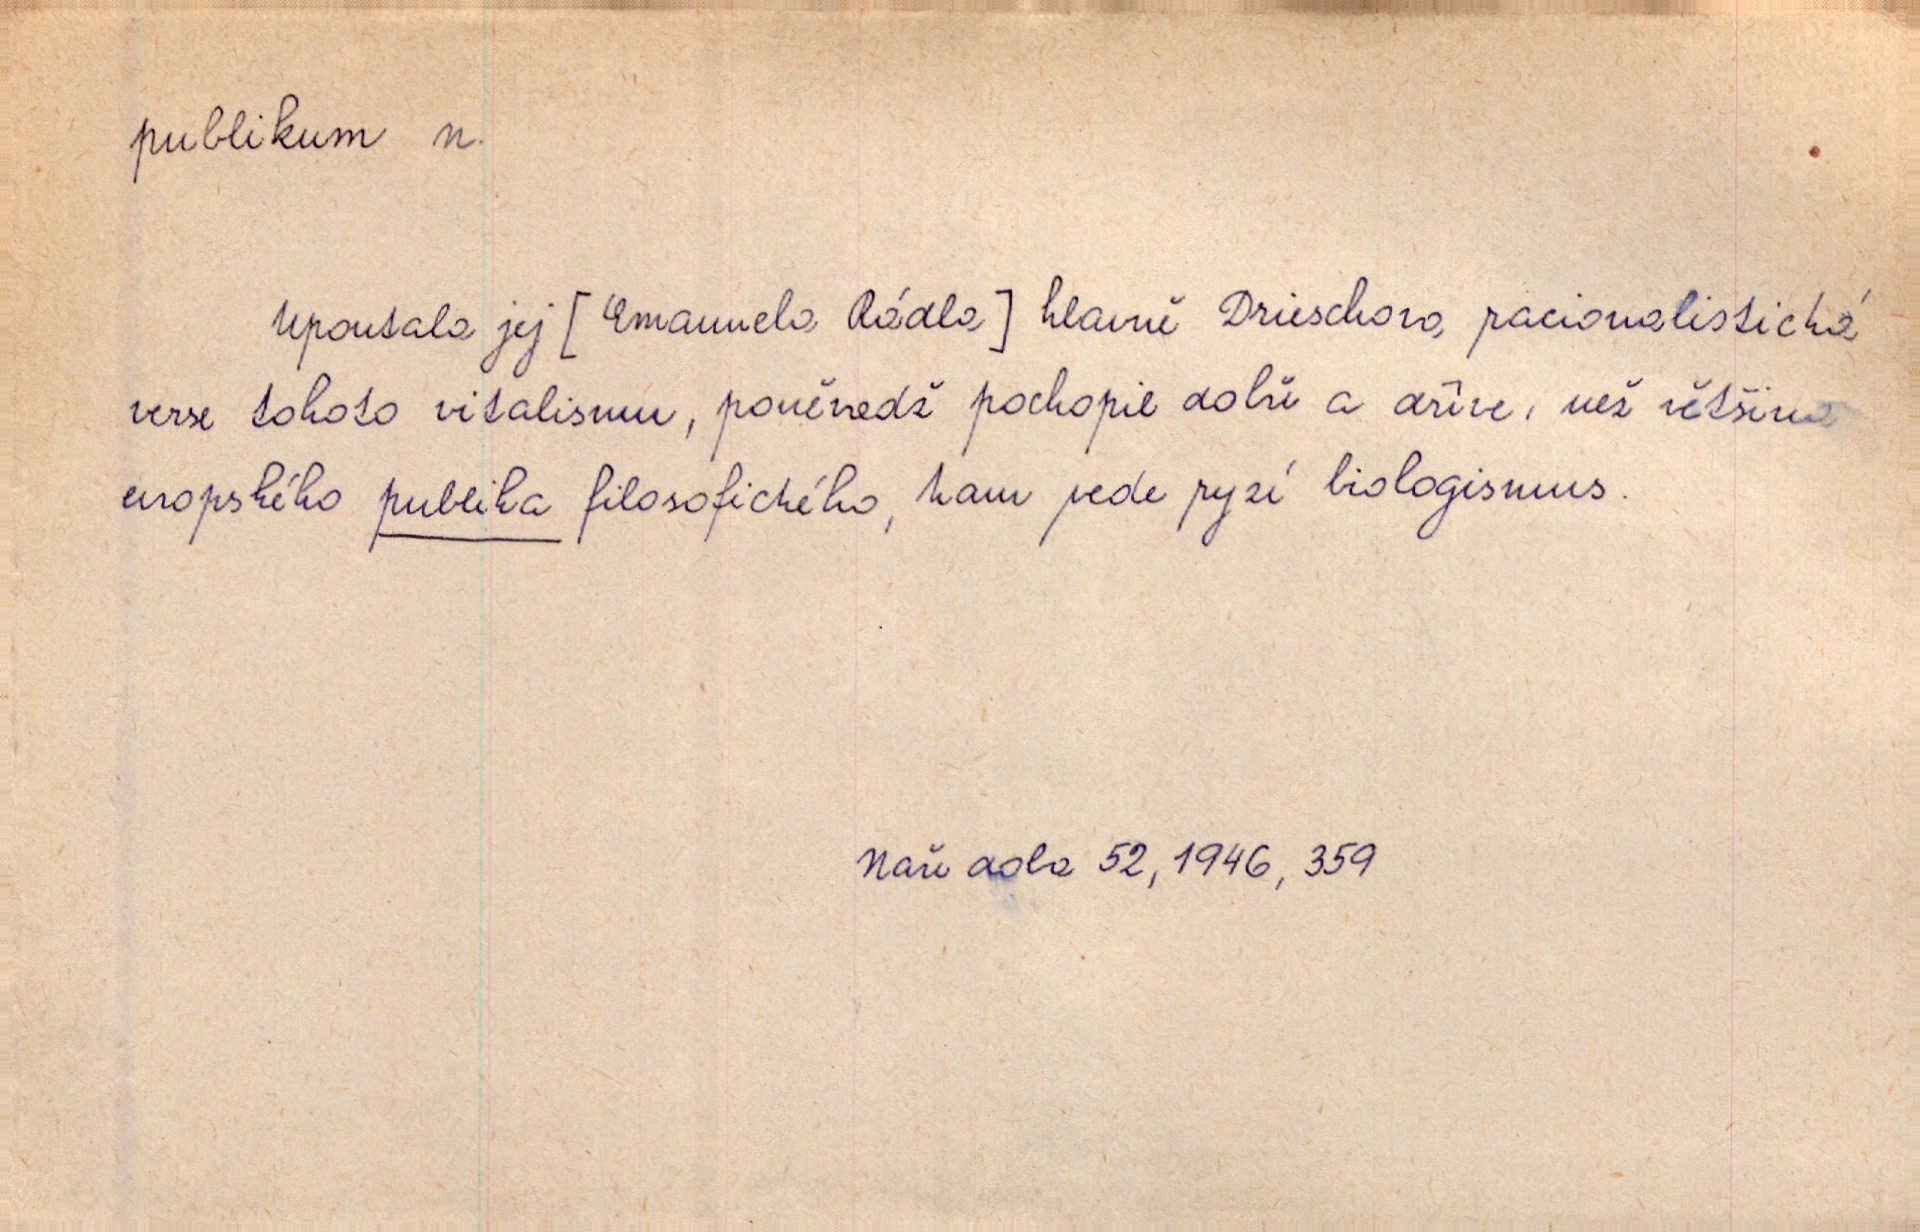 publikum n.
Upoutala jej [Emanuela Rádla] hlavně Drieschova racionalistická
verse tohoto vitalismu, poněvadž pochopil dobře a dříve, než většina
evropského publika filosofického, kam vede ryzí biologismus.
Naše doba 52, 1946, 359